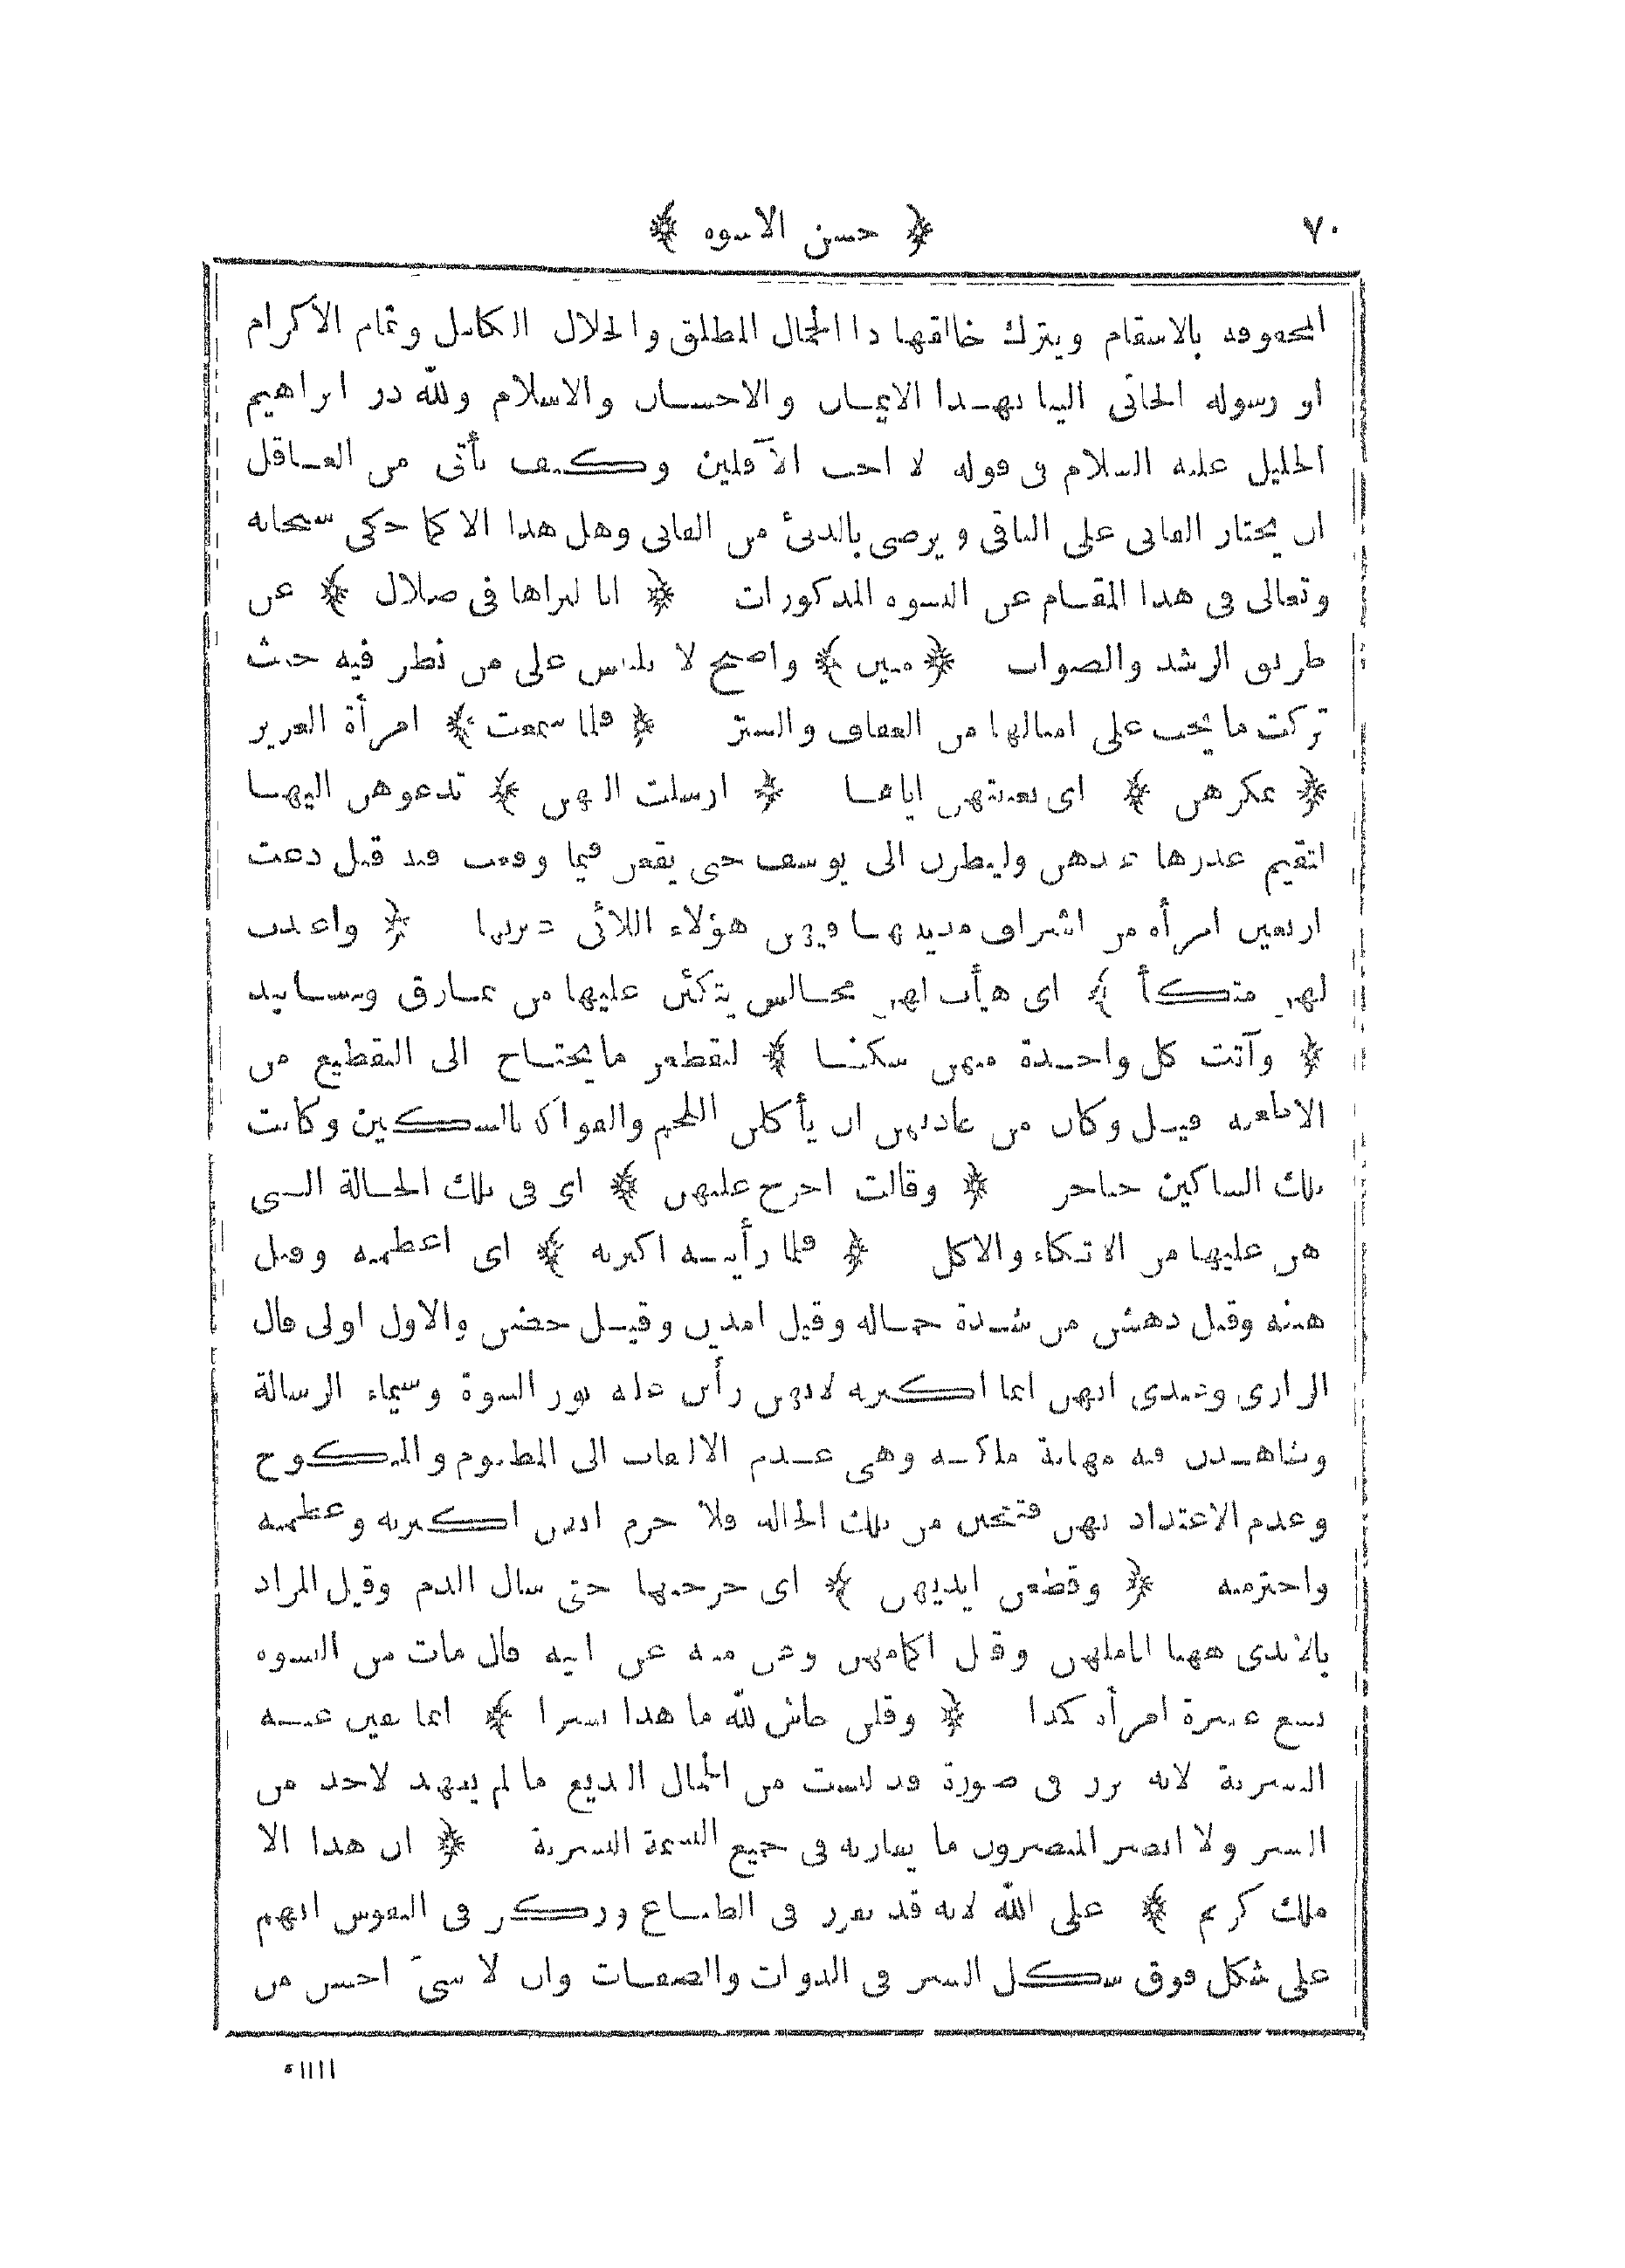 ٧٠
﴿ حسن الاسوه ﴾
المحفوفة بالاسقام ويترك خالقها ذا الجمال المطلق والجلال الكامل وتمام الاكرام
او رسوله الينا بهذا الايمان والاحسان والاسلام ولله در ابراهيم
الخليل عليه السلام فى قوله لا احب الآفلين وكيف يأتى من العاقل
ان يختار الفانى على الباقى ويرضى بالدنئ من العالى وهل هذا الا كما حكى سبحانه
وتعالى فى هذا المقام عن النسوه المذكورات ﴿ انا لنراها فى ضلال ﴾ عن
طريق الرشد والصواب ﴿ مبين ﴾ واضح لا يلتبس على من نظر فيه حيث
تركت ما يجب على امثالها من العفاف والستر ﴿ فلما سمعت ﴾ امرأة العزيز
﴿ بمكرهن ﴾ اى بغيبتهن اياها ﴿ ارسلت اليهن ﴾ تدعوهن اليها
لتقيم عذرها عندهن ولينظرن الى يوسف حتى يقعن فيما وقعت فيه قيل دعت
اربعين امرأه من اشراف مدينتها فيهن هؤلاء اللائى عيرنها ﴿ واعتدت
لهن متكأ ﴾ اى هيأت لهن مجالس يتكئن عليها من نمارق ومسانيد
﴿ وآتت كل واحدة منهن سكينا ﴾ لتقطعن ما يحتاج الى التقطيع من
الاطعمه قيل وكان من عادتهن ان يأكلن اللحم والفواكه بالسكين وكانت
تلك السكاكين خناجر ﴿ وقالت اخرج عليهن ﴾ اى فى تلك الحالة التى
هن عليها من الاتكاء والاكل ﴿ فلما رأينه اكبرنه ﴾ اى اعظمنه وقيل
هبنه وقيل دهشن من شدة جماله وقيل امذين وقيل حضن والاول اولى قال
الرازى وعندى انهن انما اكبرنه لانهن رأين عليه نور النبوة وسيماء الرسالة
وشاهدن فيه مهابة ملكيه وهى عدم الالتفات الى المطعوم والمنكوح
وعدم الاعتداد بهن فتعجبن من تلك الحاله فلا جرم انهن اكبرنه وعظمنه
واحترمنه ﴿ وقطعن ايديهن ﴾ اى جرحنها حتى سال الدم وقيل المراد
بالايدى ههنا اناملهن وقيل اكمامهن وعن منبه عن ابيه قال مات من النسوه
تسع عشرة امرأه كمدا ﴿ وقلن حاش لله ما هذا بشرا ﴾ انما نفين عنه
البشرية لانه برز فى صورة قد لبست من الجمال البديع ما لم يعهد لاحد من
البشر ولا ابصر المبصرون ما يقاربه فى جميع النسمة البشرية ﴿ ان هذا الا
ملك كريم ﴾ على الله لانه قد تقرر فى الطباع وركز فى النفوس انهم
على شكل فوق شكل البشر فى الذوات والصفات وان لا شئ احسن من